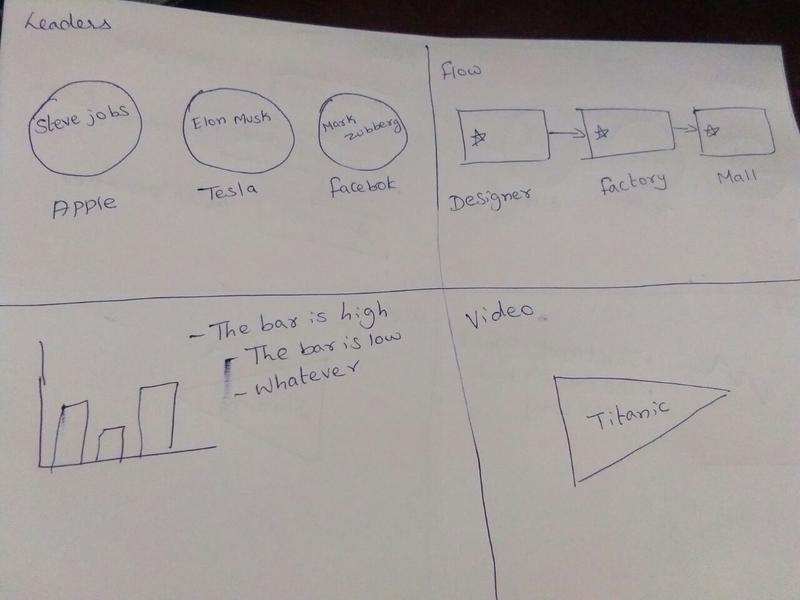 Leaders
Steve jobs
Elon Musk
Mark
zubberg
Apple
Tesla
facebok
flow
Designer
factory
Mall
- The bar is high
- The bar is low
- Whatever
Video
Titanic